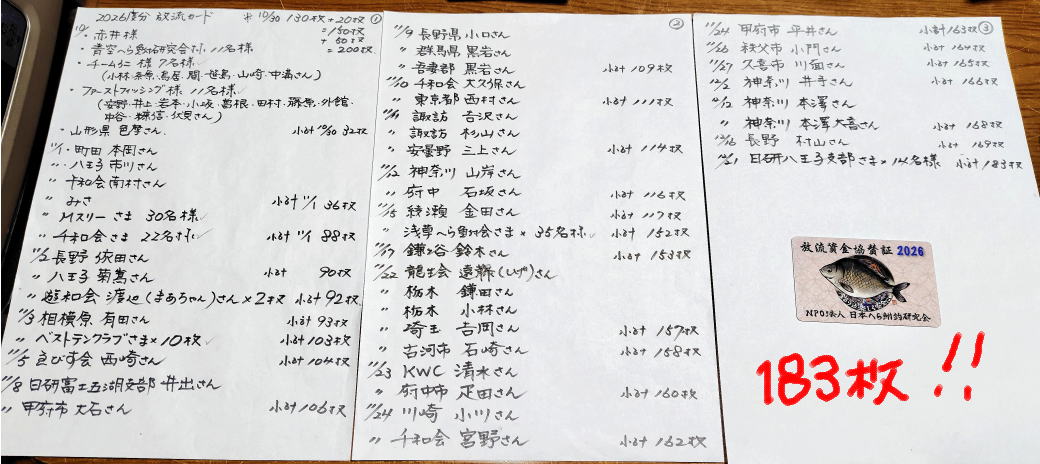 2026度分 放流カード
* 10/30 130枚+20枚 ①
=150枚
+50枚
=200枚
10/
・赤井様
・青空へら鮒研究会さま 11名様
・チームくに 様 7名様✓
(小林・条原・鳥居・関・笹島・山崎・中満さん)
・ファーストフィッシング様 11名様✓
(安野・井上・岩本・小坂・葛根・田村・藤原・外館・
中谷・穂信・伏見さん)
・山形県 色摩さん 小計10/30 32枚
11/1・町田 本岡さん
〃・八王子 市川さん
〃 千和会 南村さん
〃 みさ 小計 11/1 36枚
〃 Mスリー さま 30名様✓
〃 千和会さま 22名様✓ 小計 11/1 88枚
11/2 長野 依田さん
〃 八王子 菊嶌さん 小計 90枚
〃 遊和会 渡辺(まあちゃん)さん×2枚 小計 92枚
11/3 相模原 有田さん 小計 93枚
〃 ベストテンクラブさま×10枚✓ 小計103枚
11/5 ゑびす会 西崎さん 小計104枚
11/8 日研富士五湖支部 井出さん
〃 甲府市 大石さん 小計106枚
②
11/9 長野県 小口さん
〃 群馬県 黒岩さん
〃 吾妻郡 黒岩さん 小計 109枚
11/10 千和会 大久保さん
〃 東京都 西村さん 小計111枚
諏訪 吉沢さん
〃 諏訪 杉山さん
〃 安曇野 三上さん 小計 114枚
11/12 神奈川 山岸さん
〃 府中 石坂さん 小計 116枚
11/15 綾瀬 金田さん 小計 117枚
〃 浅草へら鮒会さま× 35名様✓ 小計 152枚
鎌ヶ谷 鈴木さん 小計153枚
11/22 龍生会 遠藤(ひげ)さん
〃 栃木 鎌田さん
〃 栃木 小林さん
〃 埼玉 吉岡さん 小計157枚
〃 古河市 石崎さん 小計158枚
11/23 KWC 清水さん
〃 府中市 疋田さん 小計160枚
11/24 川崎 小川さん
〃 千和会 宮野さん 小計162枚
11/24 甲府市 平井さん 小計163枚 ③
11/26 秩父市 小門さん 小計 164枚
11/27 久喜市 川面さん 小計165枚
12/2 神奈川 井手さん 小計166枚
12/12 神奈川 本澤さん
〃 神奈川 本澤大喜さん 小計 168枚
12/16 長野 村山さん 小計 169枚
12/21 日研八王子支部さま×14名様 小計183枚
放流資金協賛証 2026
NPO法人 日本へら鮒釣研究会
183枚!!